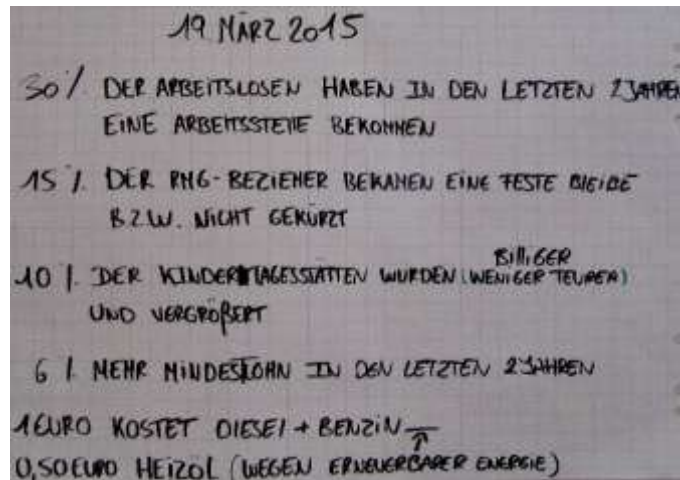 19 MÄRZ 2015
30% DER ARBEITSLOSEN HABEN IN DEN LETZTEN 2 JAHREN
EINE ARBEITSSTELLE BEKOMMEN
15 % DER RMG-BEZIEHER BEKAMEN EINE FESTE BLEIBE
BZW. NICHT GEKÜRZT
BILLIGER
10 % DER KINDERTAGESSTÄTTEN WURDEN (WENIGER TEURER)
UND VERGRÖßERT
6 % MEHR MINDESTLOHN IN DEN LETZTEN 2 JAHREN
1 EURO KOSTET DIESEL + BENZIN
0,50 EURO HEIZÖL (WEGEN ERNEUERBARER ENERGIE)